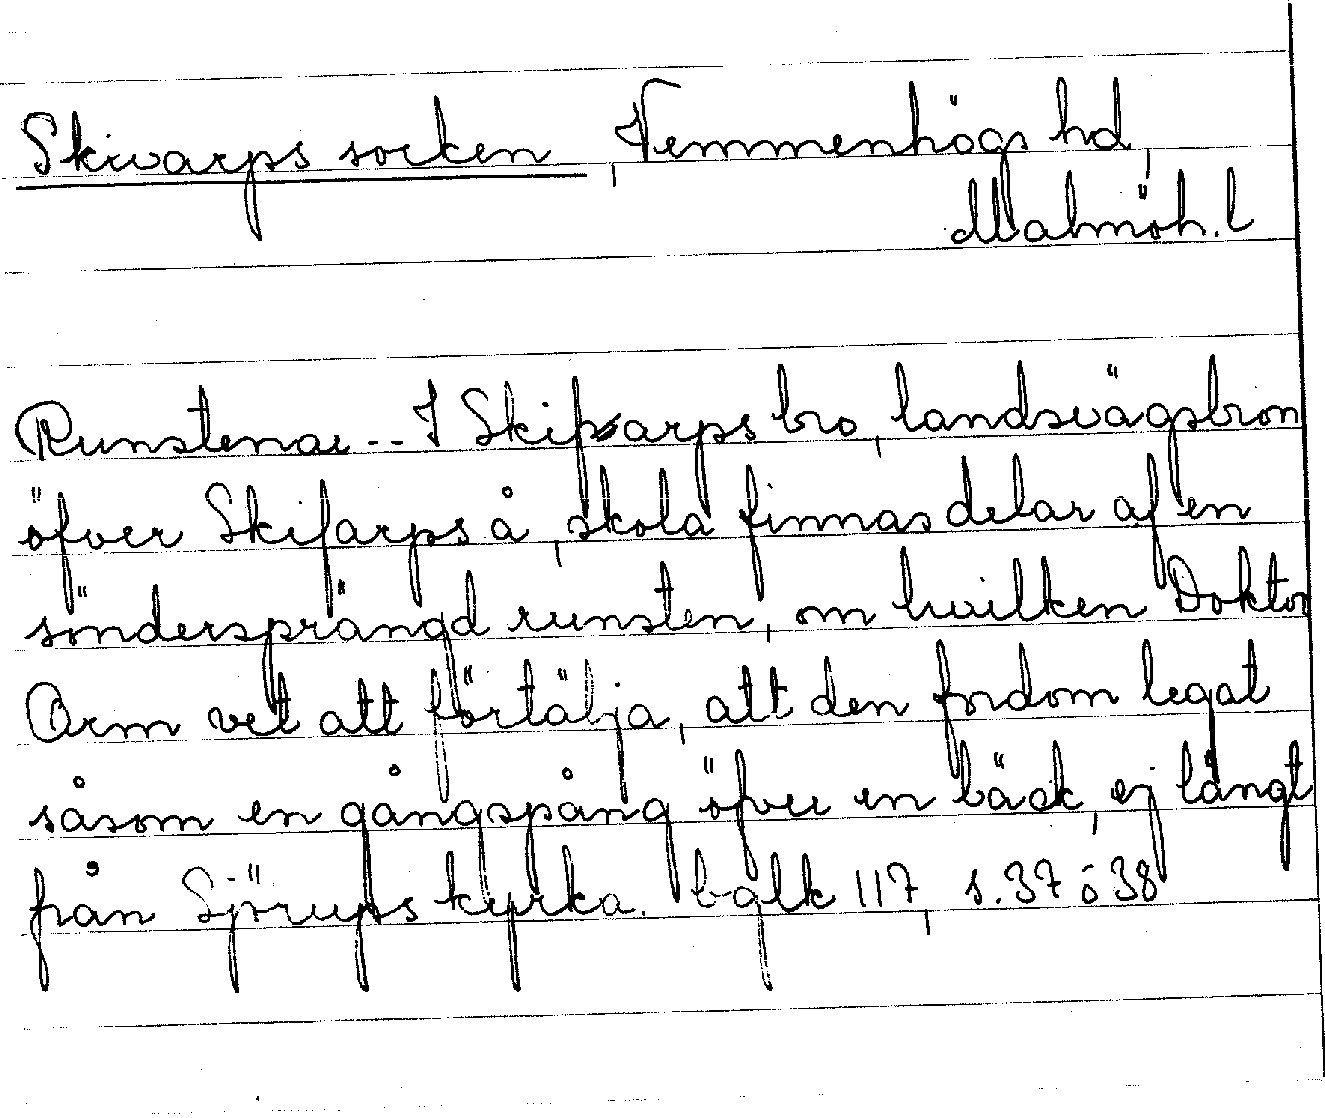 Skivarps socken, Vemmenhögs hd,
Malmöh. l
Runstenar -- I Skifarps bro, landsvägsbron
öfver Skifarps å, skola finnas delar af en
söndersprängd runsten, om hvilken Doktor
Orm vet att förtälja, att den fordom legat
såsom en gångspång öfver en bäck, ej långt
från Sjörups kyrka. bglk 117, s. 37 ô 38